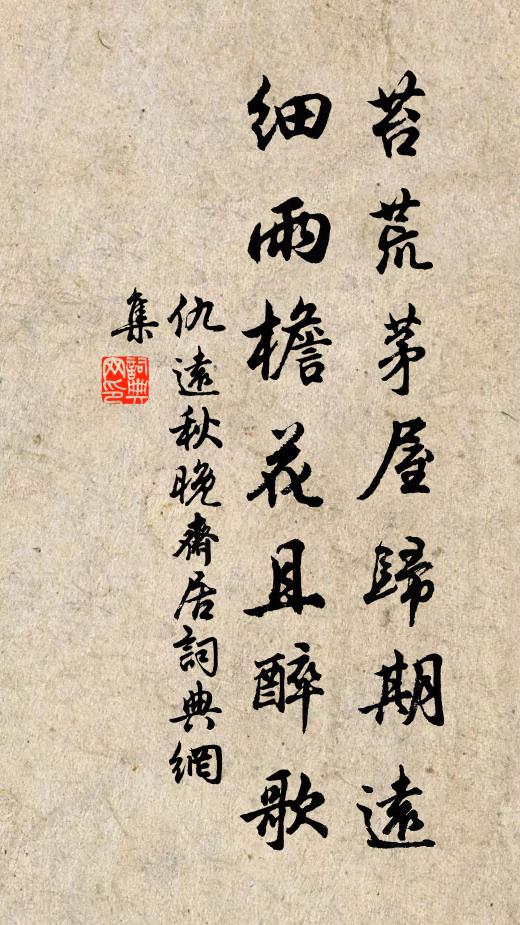 苔荒茅屋歸期遠
細雨檐花且醉歌
仇遠秋晚齋居詞典網
集
詞典
网印